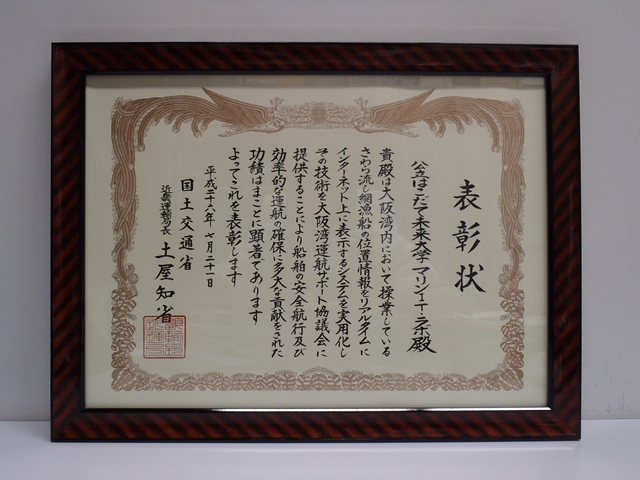 表彰状
公立はこだて未来大学マリンIT・ラボ殿
貴殿は大阪湾内において操業している
さわら流し網漁船の位置情報をリアルタイムに
インターネット上に表示するシステムを実用化し
その技術を大阪湾運航サポート協議会に
提供することにより船舶の安全航行及び
効率的な運航の確保に多大な貢献をされた
功績はまことに顕著であります
よってこれを表彰します
平成二十六年七月二十一日
国土交通省
近畿運輸局長 土屋知省